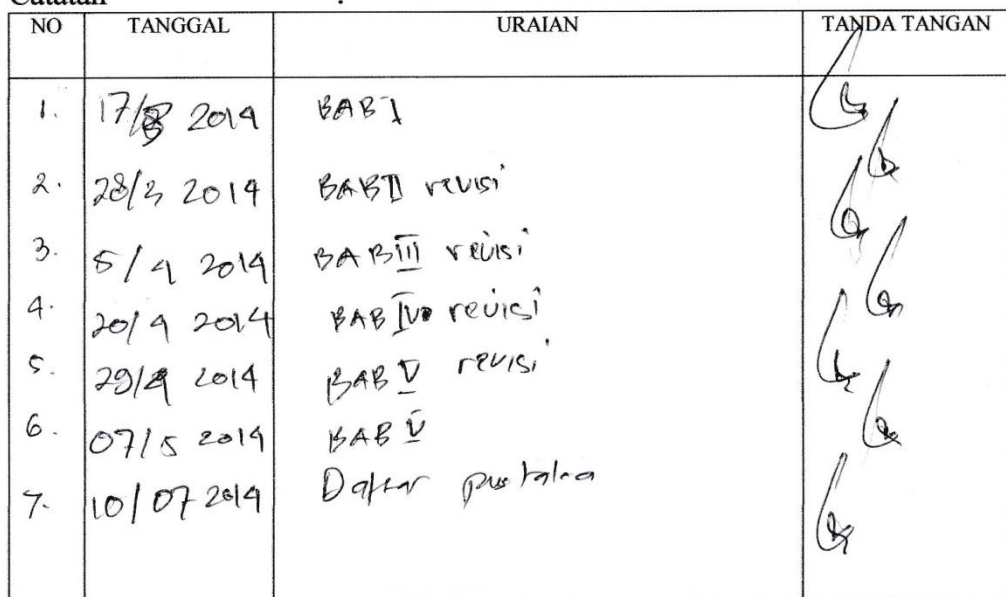 Catatan :
NO TANGGAL URAIAN TANDA TANGAN
1. 17/3 2014 BAB I
2. 28/3 2014 BAB II revisi
3. 5/4 2014 BAB III revisi
4. 20/4 2014 BAB IV revisi
5. 29/4 2014 BAB V revisi
6. 07/5 2014 BAB V
7. 10/07 2014 Daftar pustaka